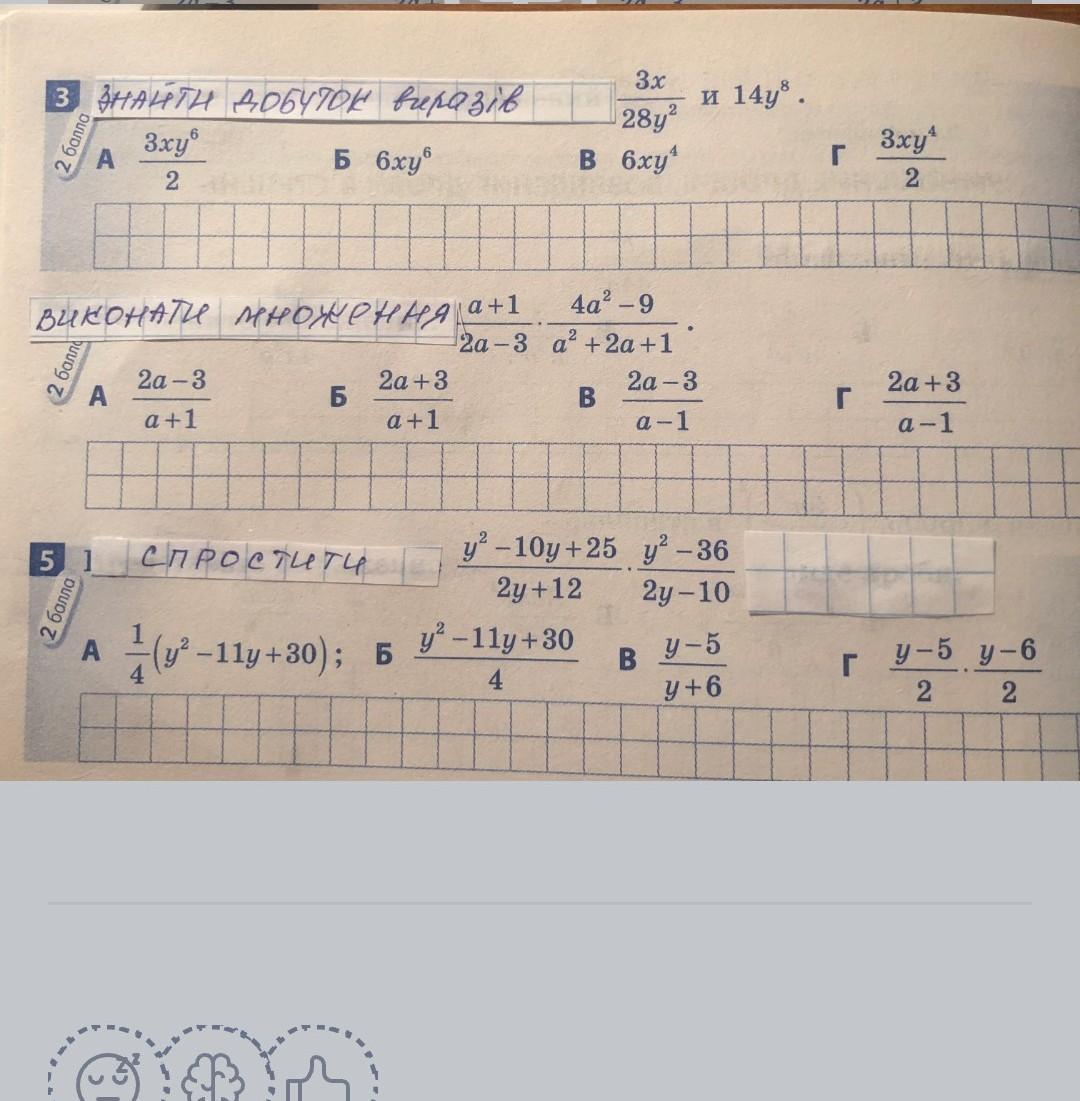 3 ЗНАЙТИ ДОБУТОК виразів 3x/28y² и 14y⁸.
2 балла
А 3xy⁶/2 Б 6xy⁶ В 6xy⁴ Г 3xy⁴/2
ВИКОНАТИ МНОЖЕННЯ a+1/2a−3 · 4a²−9/a²+2a+1.
2 балла
А 2a−3/a+1 Б 2a+3/a+1 В 2a−3/a−1 Г 2a+3/a−1
5 СПРОСТИТИ y²−10y+25/2y+12 · y²−36/2y−10
2 балла
А 1/4(y²−11y+30); Б y²−11y+30/4 В y−5/y+6 Г y−5/2 · y−6/2